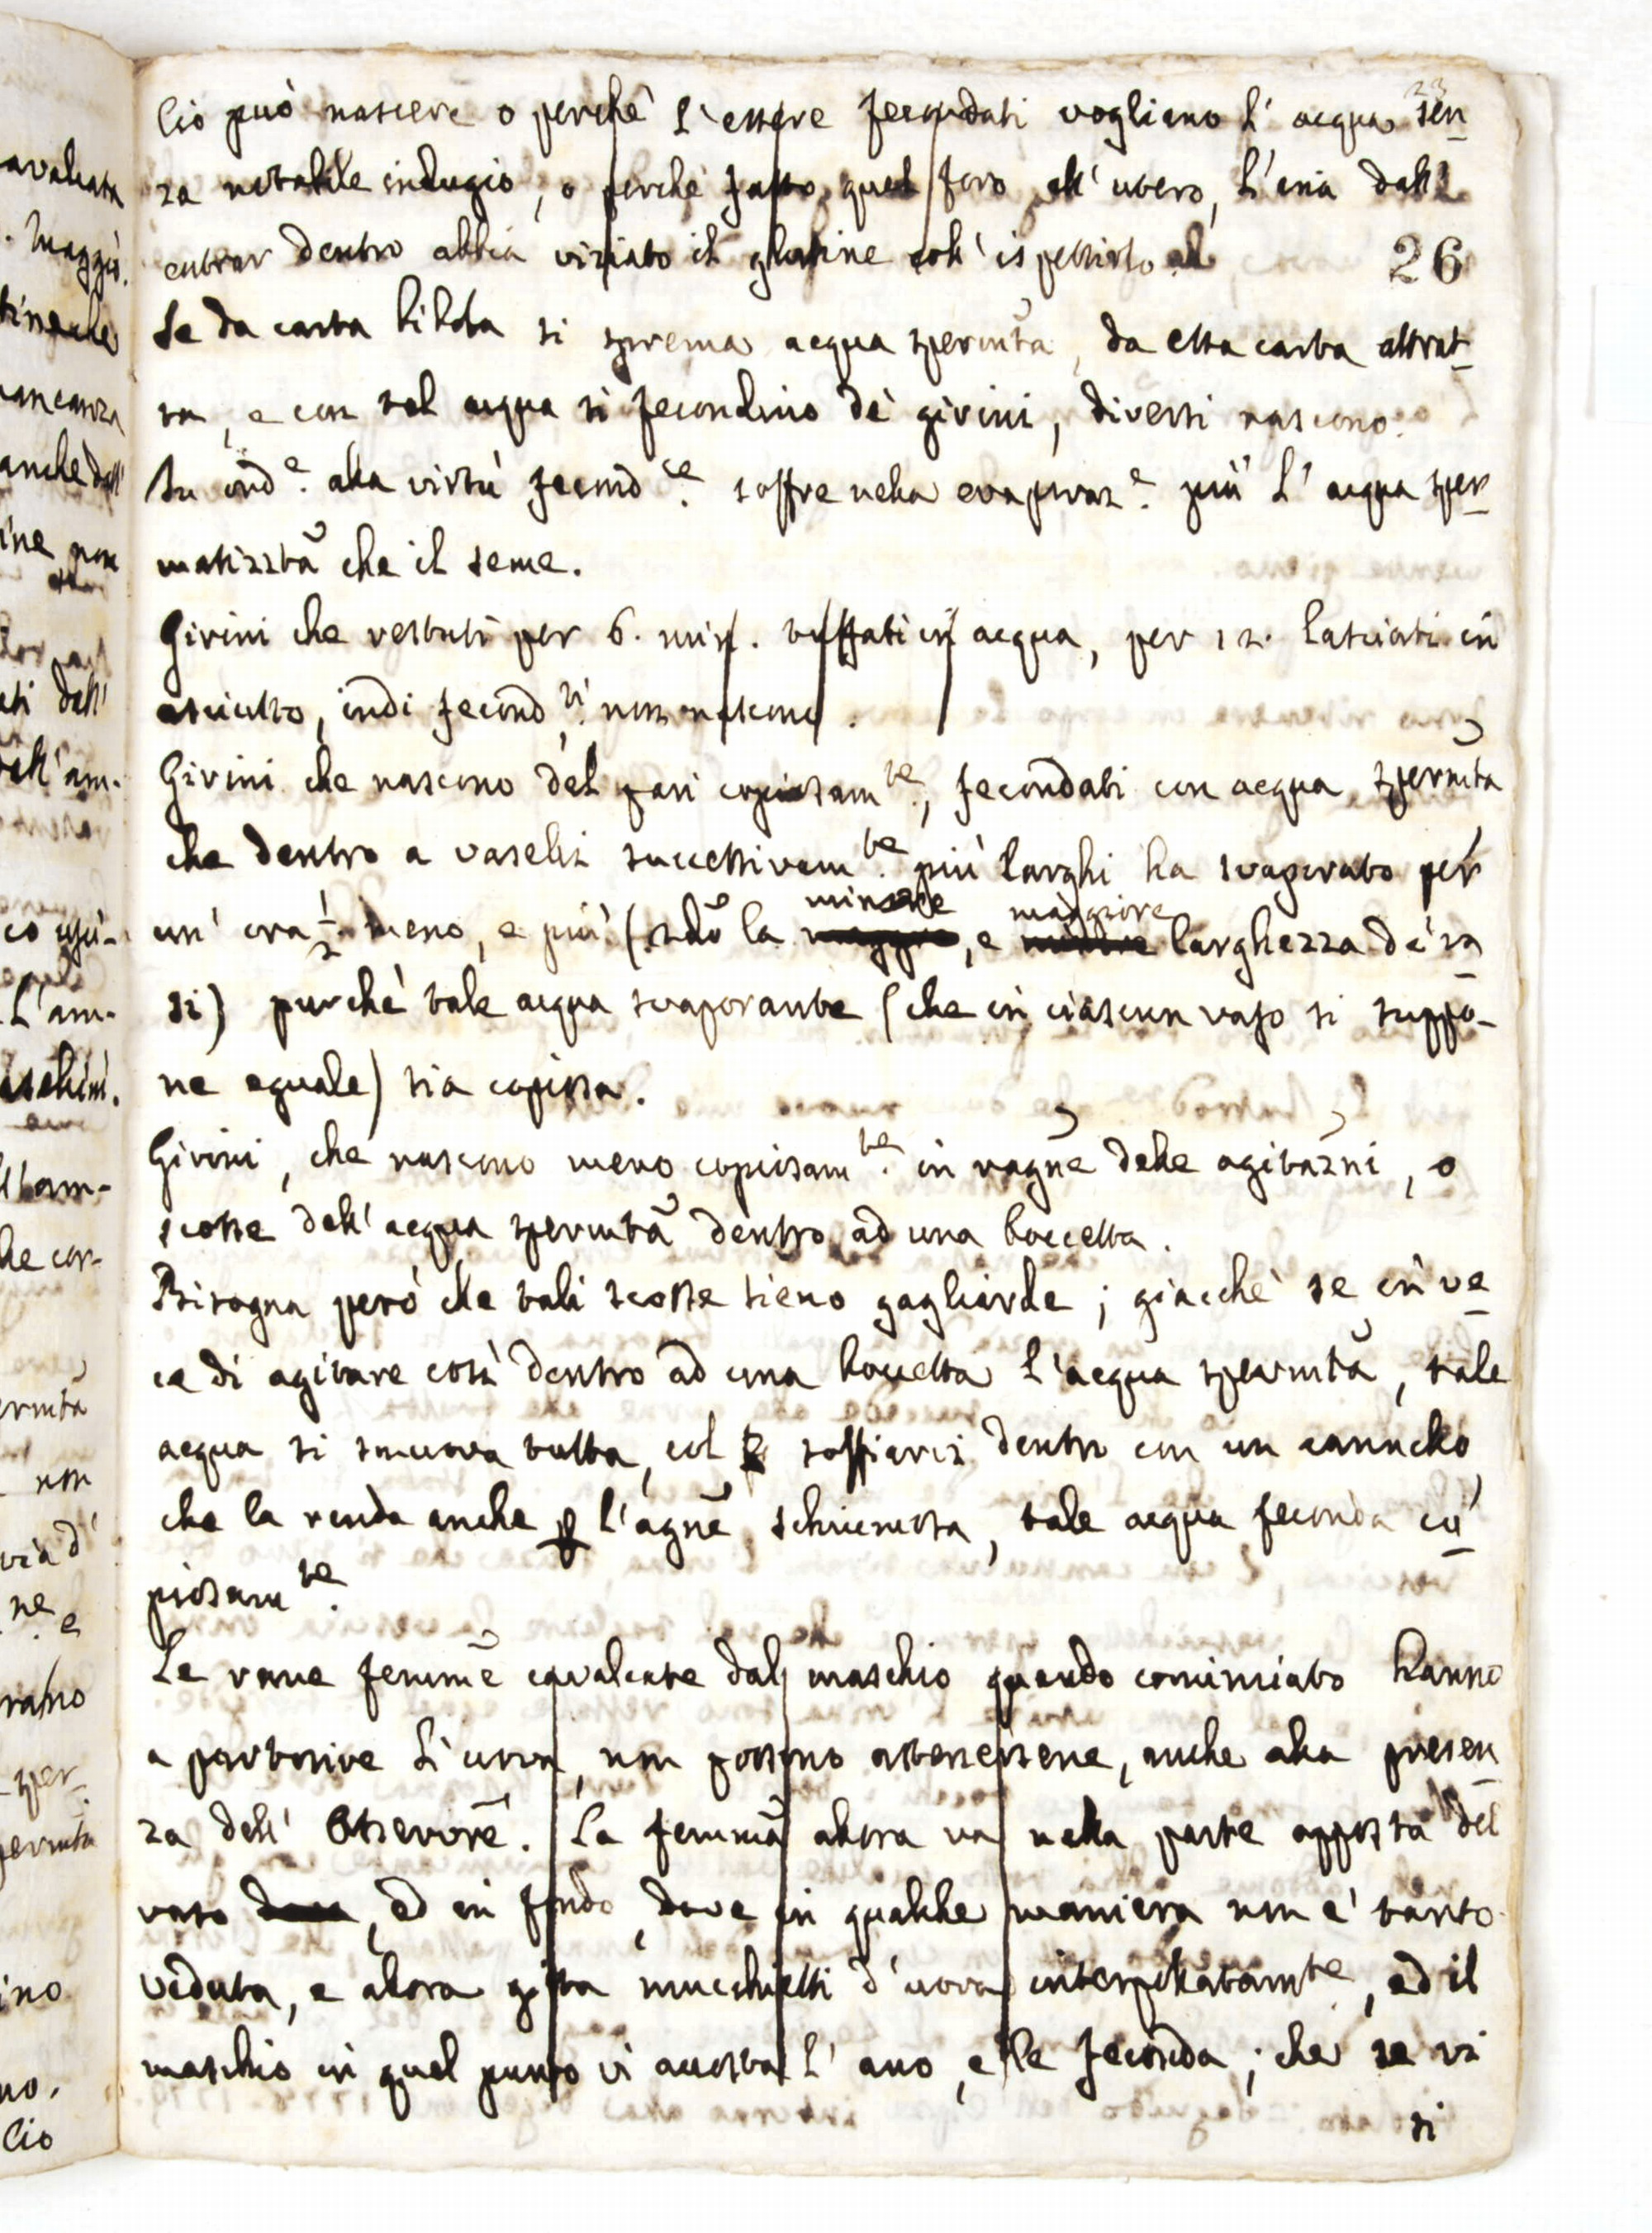 23
Ciò può nascere o perchè l'essere fecondati vogliano l'acqua sen
za notabile indugio, o perchè fatto quel foro all'utero, l'aria dall'
entrar dentro abbia viziato il glutine coll'ispessirlo
26
Se da carta bibola si sprema acqua spermta, da essa carta attrat
ta, e con tal acqua si fecondino de' girini, diversi nascono.
In ord.e alla virtù fecond.ce soffre nella evaporaz.e più l'acqua sper
matizzta che il seme.
Girini che restuti per 6. min. tuffati in acqua, per 12. lasciati in
asciutto, indi fecond.ti non nascono.
Girini che nascono del pari copiosam.te, fecondati con acqua spermta
che dentro a vaselli successivam.te più larghi ha svaporato per
un' ora 1/2 meno, e più (sdo la minore, e maggiore larghezza de' va
si) purchè tale acqua svaporante (che in ciascun vaso si suppo-
ne eguale) sia copiosa.
Girini, che nascono meno copiosam.te in ragne delle agitazni, o
scosse dell'acqua spermta dentro ad una boccetta.
Bisogna però che tali scosse sieno gagliarde; giacchè se in ve
ce di agitare così dentro ad una boccetta l'acqua spermta, tale
acqua si smuova tutta, col soffiarvi dentro con un cannello,
che la renda anche p l'agne, schiumosa, tale acqua feconda co
piosam.te
Le rane femme cavalcate dal maschio quando cominciato hanno
a partorire l'uova, non possono astenersene, anche alla presen
za dell' Osservore. La femma allora va nella parte opposta del
vaso, ed in fondo, dove in qualche maniera non è tanto
veduta, e allora gitta mucchietti d'uova interpellatamte, ed il
maschio in quel punto vi accosta l'ano, e le feconda; che se vi
si